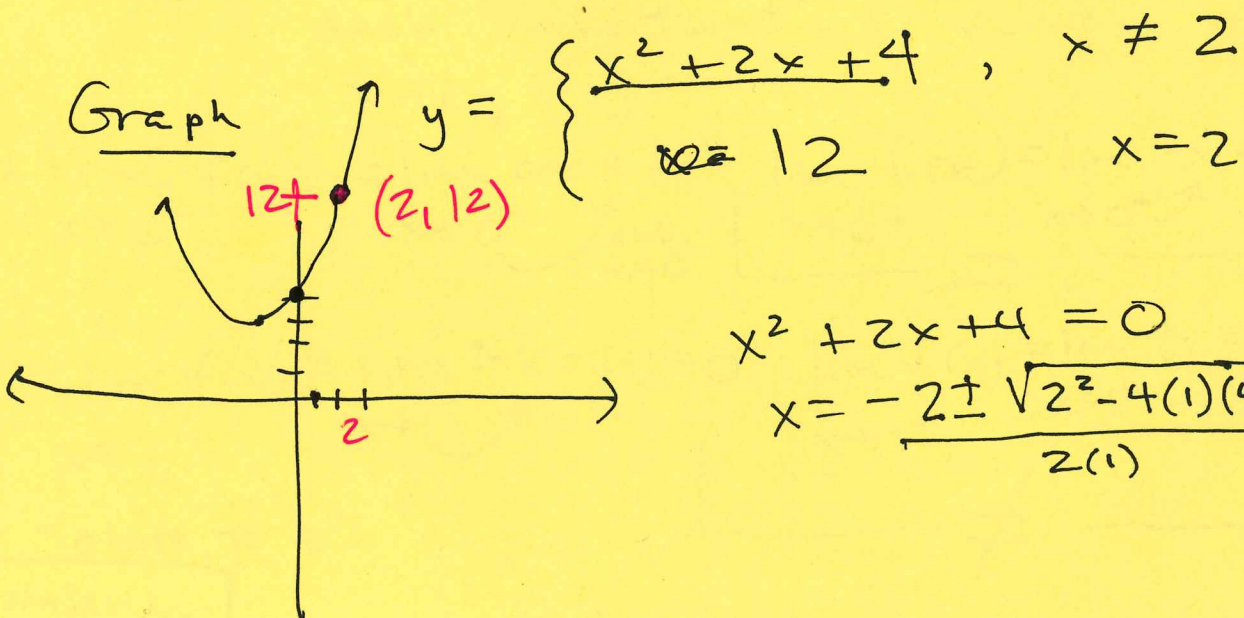 Graph
y = { x² + 2x + 4 , x ≠ 2
12 x = 2
12
(2, 12)
2
x² + 2x + 4 = 0
x = -2 ± √2² - 4(1)(4
2(1)